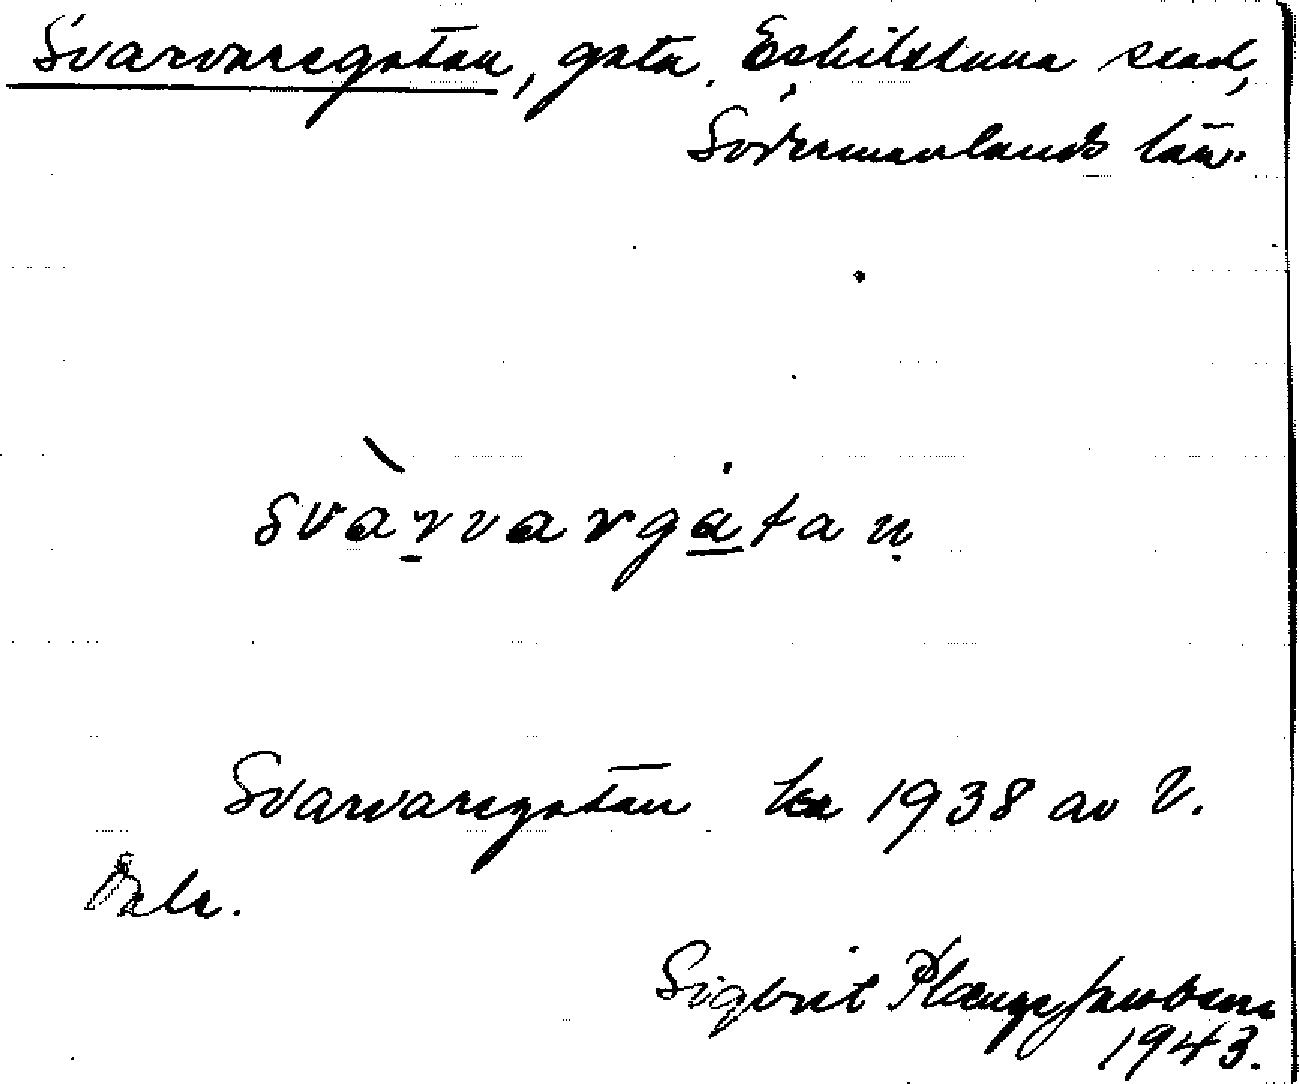 Svarvaregatan, gata, Eskilstuna stad,
Södermanlands län.
svàrvargatan
Svarvaregatan ka 1938 av V.
Sigbrit Plænge Jacobson
1943.